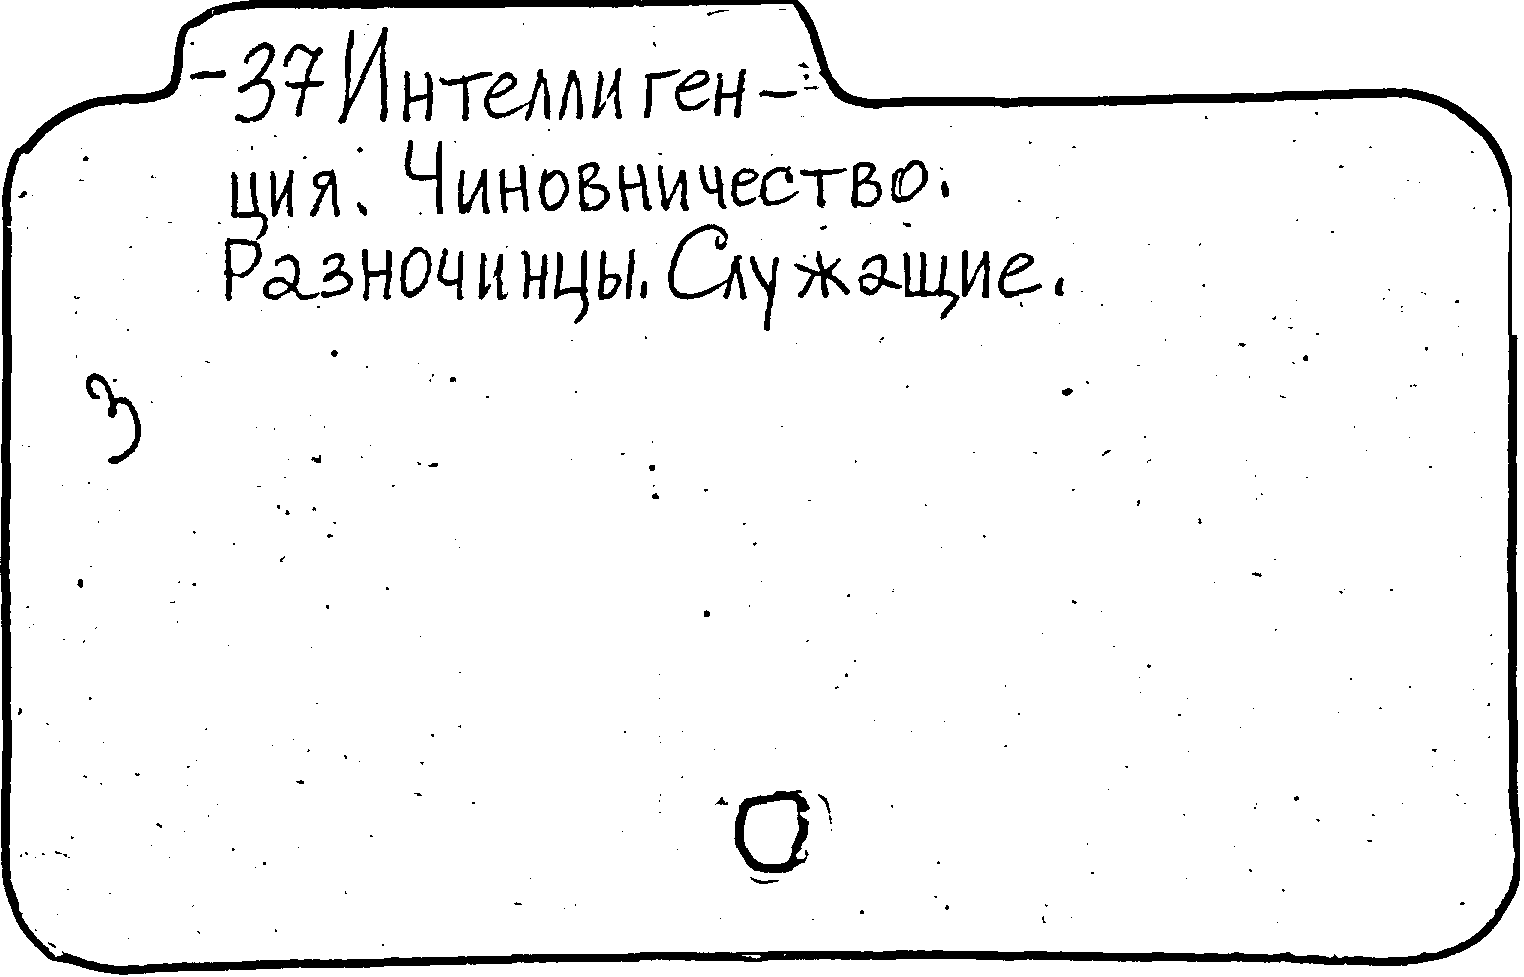 -37 Интеллиген-
ция. Чиновничество.
Разночинцы. Служащие.
3